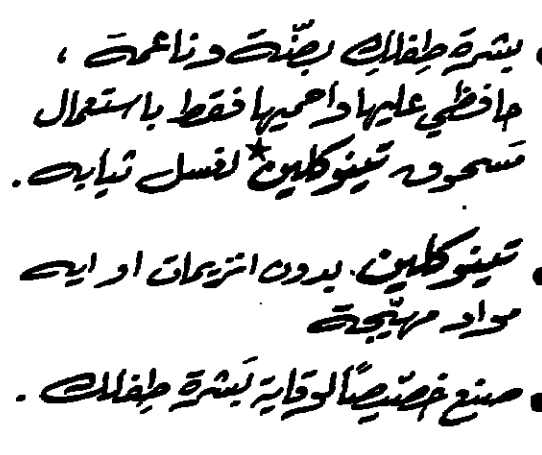 • بشرة طفلكِ بضّة وناعمة ،
حافظي عليها واحميها فقط باستعمال
مسحوق تينوكلين* لغسل ثيابه .
• تينوكلين. بدون انزيمات او ايه
مواد مهيّجة
• صنع خصّيصاً لوقاية بَشرة طفلك .